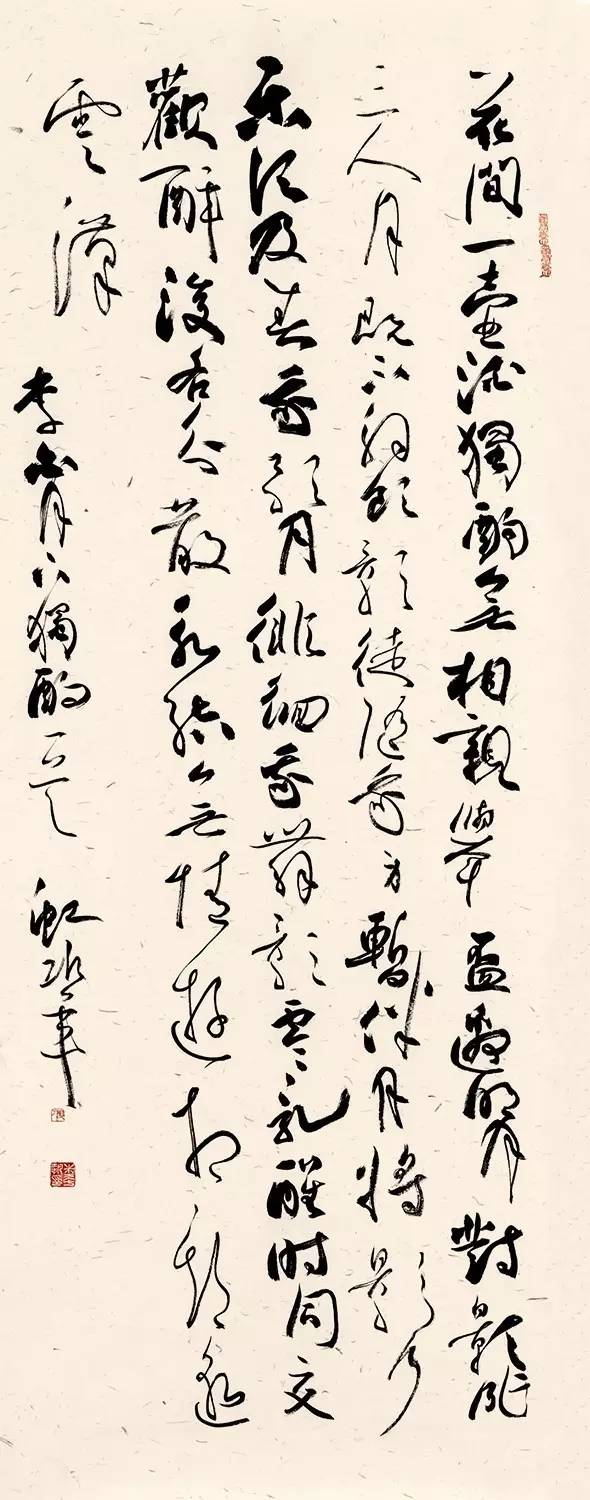 花間一壺酒獨酌無相親舉盃邀明月對影成
三人月既不解飲影徒隨我身暫伴月將影行
樂須及春我歌月徘徊我舞影零亂醒時同交
歡醉後各分散永結無情遊相期邈
雲漢
李白月下獨酌一首